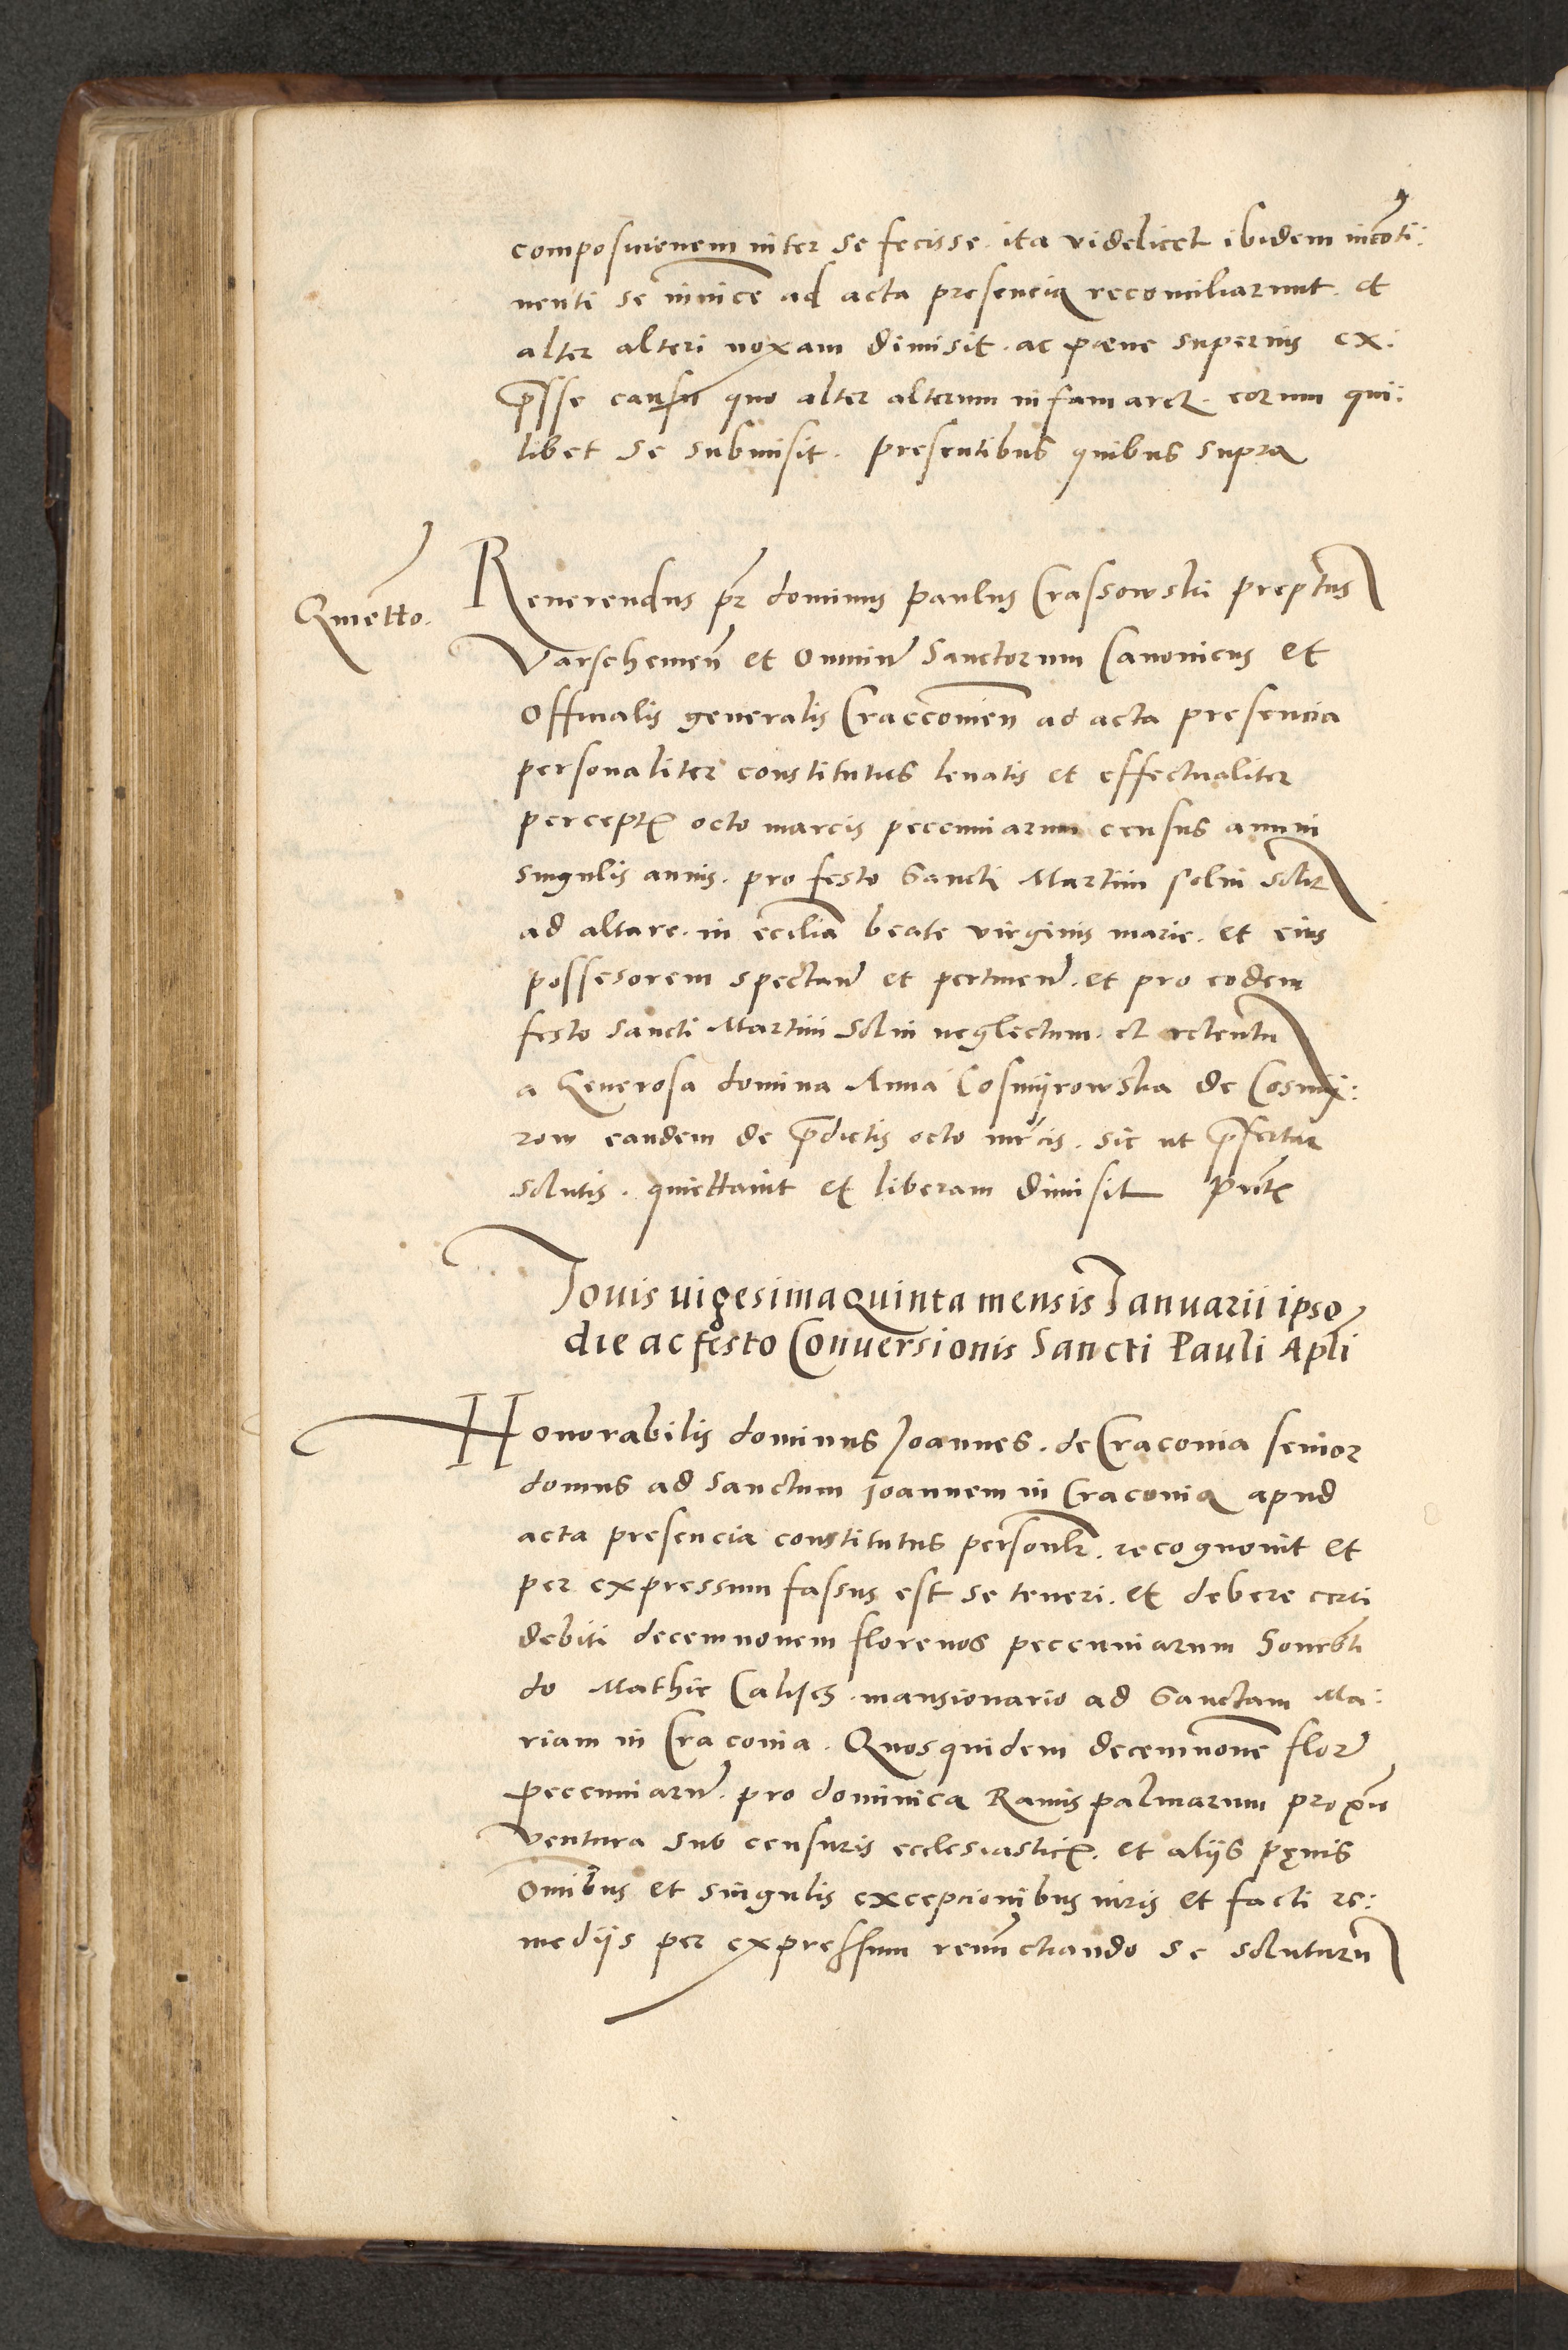 composicionem inter se fecisse. ita videlicet ibidem incõti:
nenti se inuicẽ ad acta presencia reconciliarunt. et
alter alteri noxam dimisit. ac pæne superius ex:
p̃sse casu quo alter alterum infamaret. eorum qui:
libet se submisit. presentibus quibus supra
Qnietto.
Reuerendus pr̃ dominus Paulus Crassowski prepťus
Varschewieñ et Omniũ Sanctorum Canonicus et
Officialis generalis Craccouieñ ad acta presencia
personaliter constitutus leuatis et effectualiter
perceptis octo marcis pecuniarum census annui
singulis annis. pro festo Sancti Martini solui solit
ad altare. in ecclia beate virginis marie. et eius
possesorem spectañ et pertineñ. et pro eodem
festo sancti Martini Solui neglectum. et retentũ
a Generosa domina Anna Cosmijrowska de Cosmij:
row eandem de p̃dictis octo mrcis. sic ut p̃fertur
solutis. quiettauit et liberam dimisit Pñtẽ
Iouis uigesimaquinta mensis Ianuarii ipso
die ac festo Conuersionis Sancti Pauli Apli
Honorabilis dominus Joannes. de Craconia senior
domus ad Sanctum Joannem in Craconia apud
acta presencia constitutus personlr. recognouit et
per expressum fassus est se teneri. et debere certi
debiti decemnouem florenos pecuniarum Honrabli
do Mathie Calijes. mansionario ad Sanctam Ma:
riam in Craconia. Quosquidem decemnouẽ floř
pecuniarũ. pro dominica Ramispalmarum proxĩe
ventura sub censuris ecclesiasticis. et alijs pęnis
omĩbus et singulis excepcionibus iuris et facti re:
medijs per expressum renũctiando se soluturũ